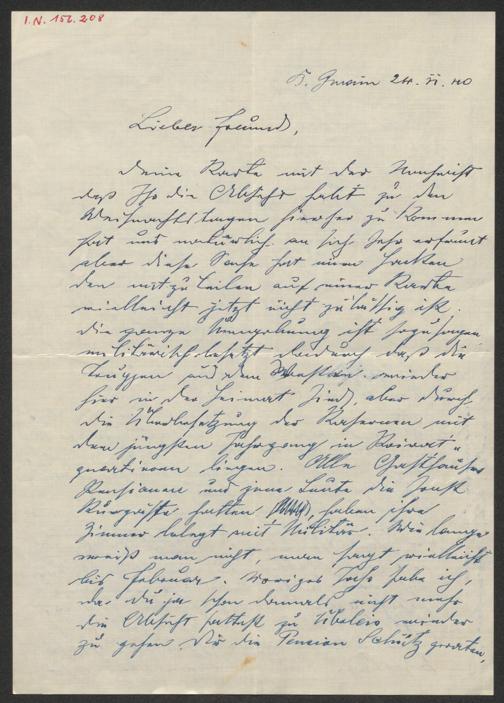 I.N. 152.208
B. Gmain 24. XI. 40
Lieber Freund,
Deine Karte mit der Nachricht
daß Ihr die Absicht habt zu den
Weihnachtstagen hierher zu kommen
hat uns natürlich an sich sehr erfreut
aber diese Sache hat einen Haken
den mitzuteilen auf einer Karte
vielleicht jetzt nicht zulässig ist.
die ganze Umgebung ist sozusagen
militärisch besetzt dadurch daß die
Truppen aus dem Westen wieder
hier in der Heimat sind, aber durch
die Überbesetzung der Kasernen mit
dem jüngsten Jahrgang in Privat-
quartieren liegen. Alle Gasthäuser
Pensionen und jene Leute die sonst
Kurgäste hatten, haben ihre
Zimmer belegt mit Militär. Wie lange
weiß man nicht, man sagt vielleicht
bis Februar. Voriges Jahr habe ich,
da Du ja schon damals nicht mehr
die Absicht hattest zu wieder
zu gehen, Dir die Pension Schütz geraten,